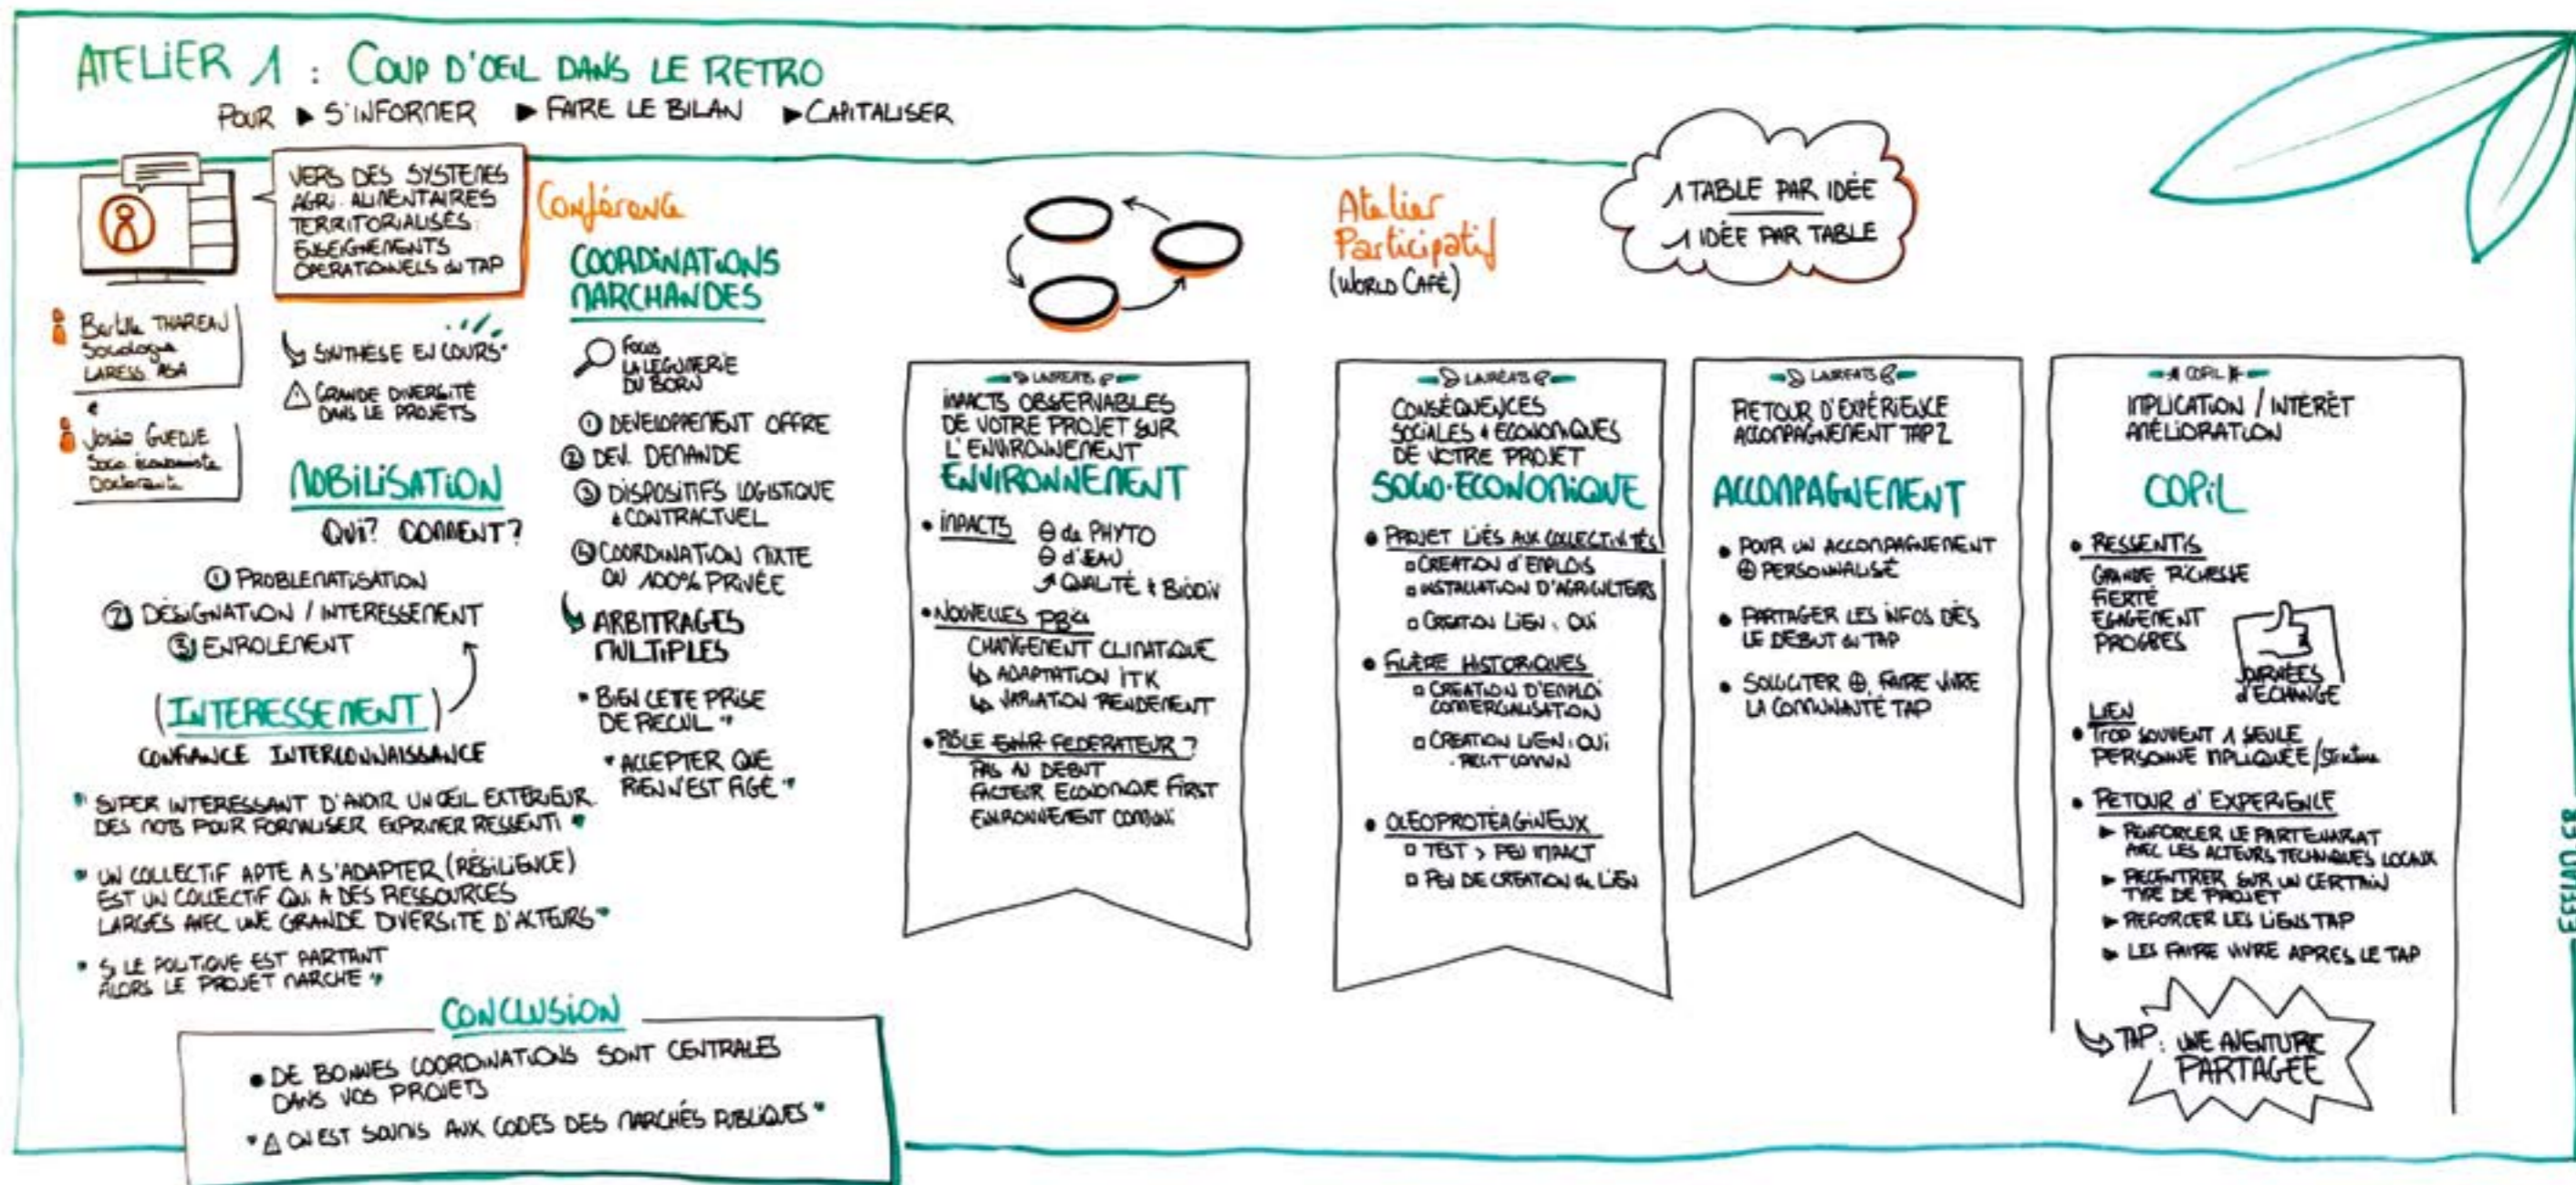 ATELIER 1 : COUP D'OEIL DANS LE RETRO
POUR ▶ S'INFORMER ▶ FAIRE LE BILAN ▶ CAPITALISER
VERS DES SYSTEMES
AGRI. ALIMENTAIRES
TERRITORIALISÉS:
ENSEIGNEMENTS
OPERATIONNELS du TAP
Conférence
Bertille THAREAU
Sociologue
LARESS. ASA
&
Josia GUEDJE
Socio économiste
Doctorante
SYNTHÈSE EN COURS"
⚠ GRANDE DIVERSITÉ
DANS LE PROJETS
MOBILISATION
QUI? COMMENT?
① PROBLEMATISATION
② DÉSIGNATION / INTERESSEMENT
③ ENROLEMENT
(INTERESSEMENT)
CONFIANCE INTERCONNAISSANCE
" SUPER INTERESSANT D'AVOIR UN OEIL EXTERIEUR.
DES MOTS POUR FORMALISER EXPRIMER RESSENTI "
" UN COLLECTIF APTE A S'ADAPTER (RÉSILIENCE)
EST UN COLLECTIF QUI A DES RESSOURCES
LARGES AVEC UNE GRANDE DIVERSITE D'ACTEURS "
" SI LE POLITIQUE EST PARTANT
ALORS LE PROJET MARCHE "
COORDINATIONS
MARCHANDES
FOCUS
LA LEGUMERIE
DU BORN
① DEVELOPPEMENT OFFRE
② DEV. DEMANDE
③ DISPOSITIFS LOGISTIQUE
& CONTRACTUEL
④ COORDINATION MIXTE
OU 100% PRIVÉE
ARBITRAGES
MULTIPLES
" BIEN CETE PRISE
DE RECUL "
" ACCEPTER QUE
RIEN N'EST FIGÉ "
CONCLUSION
• DE BONNES COORDINATIONS SONT CENTRALES
DANS VOS PROJETS
" ⚠ ON EST SOUMIS AUX CODES DES MARCHÉS PUBLIQUES "
Atelier
Participatif
(WORLD CAFÉ)
1 TABLE PAR IDÉE
1 IDÉE PAR TABLE
LAUREATS
IMPACTS OBSERVABLES
DE VOTRE PROJET SUR
L'ENVIRONNEMENT
ENVIRONNEMENT
• IMPACTS ⊖ de PHYTO
⊖ d'EAU
↗ QUALITÉ & BIODIV
• NOUVELLES PBQ
CHANGEMENT CLIMATIQUE
↳ ADAPTATION ITK
↳ VARIATION RENDEMENT
• RÔLE ENVIR FEDERATEUR ?
PAS AU DEBUT
FACTEUR ECONOMIQUE FIRST
ENVIRONNEMENT
LAUREATS
CONSÉQUENCES
SOCIALES & ECONOMIQUES
DE VOTRE PROJET
SOCIO-ECONOMIQUE
• PROJET LIÉS AUX COLLECTIVITÉS
▫ CREATION d'EMPLOIS
▫ INSTALLATION D'AGRICULTEURS
▫ CREATION LIEN : OUI
• FILIÈRE HISTORIQUES
▫ CREATION D'EMPLOI
COMERCIALISATION
▫ CREATION LIEN : OUI
RECIT COMMUN
• OLÉOPROTÉAGINEUX
▫ TEST > PEU IMPACT
▫ PEU DE CREATION de LIEN
LAUREATS
RETOUR D'EXPÉRIENCE
ACCOMPAGNEMENT TAP2
ACCOMPAGNEMENT
• POUR UN ACCOMPAGNEMENT
⊕ PERSONNALISÉ
• PARTAGER LES INFOS DÈS
LE DEBUT du TAP
• SOLLICITER ⊕, FAIRE VIVRE
LA COMMUNAUTÉ TAP
COPIL
IMPLICATION / INTÉRÊT
AMÉLIORATION
COPIL
• RESSENTIS
GRANDE RICHESSE
FIERTÉ
EGAGEMENT
PROGRES
JOURNÉES
d'ECHANGE
LIEN
• TROP SOUVENT 1 SEULE
PERSONNE IMPLIQUÉE / Structure
• RETOUR d'EXPERIENCE
▶ RENFORCER LE PARTENARIAT
AVEC LES ACTEURS TECHNIQUES LOCAUX
▶ RECENTRER SUR UN CERTAIN
TYPE DE PROJET
▶ REFORCER LES LIENS TAP
▶ LES FAIRE VIVRE APRES LE TAP
TAP : UNE AVENTURE
PARTAGÉE